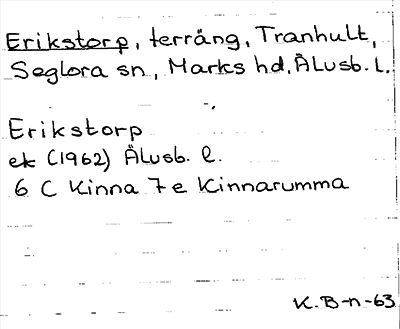 Erikstorp, terräng, Tranhult,
Seglora sn, Marks hd, Älvsb. l.
Erikstorp
ek (1962) Älvsb. l.
6 C Kinna 7e Kinnarumma
K. B-n-63